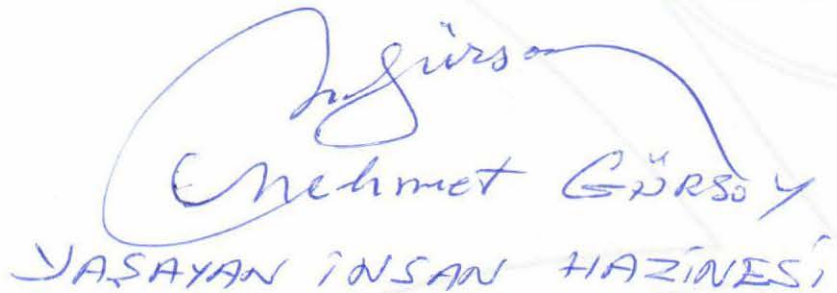 M. Gürsoy
Mehmet GÜRSOY
YAŞAYAN İNSAN HAZİNESİ